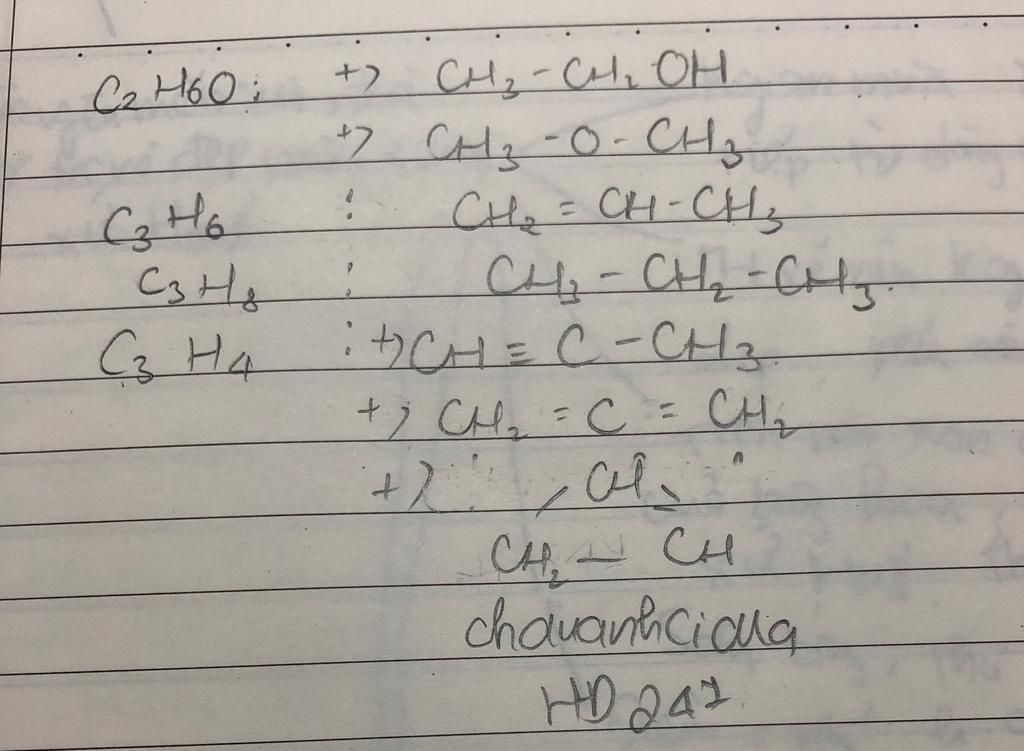 C2H6O: +) CH3 - CH2 OH
+) CH3 - O - CH3
C3H6 : CH2 = CH - CH3
C3H8 : CH3 - CH2 - CH3.
C3H4 : +) CH ≡ C - CH3.
+) CH2 = C = CH2
+) CH
CH2 — CH
chauanhciaua
HD 247